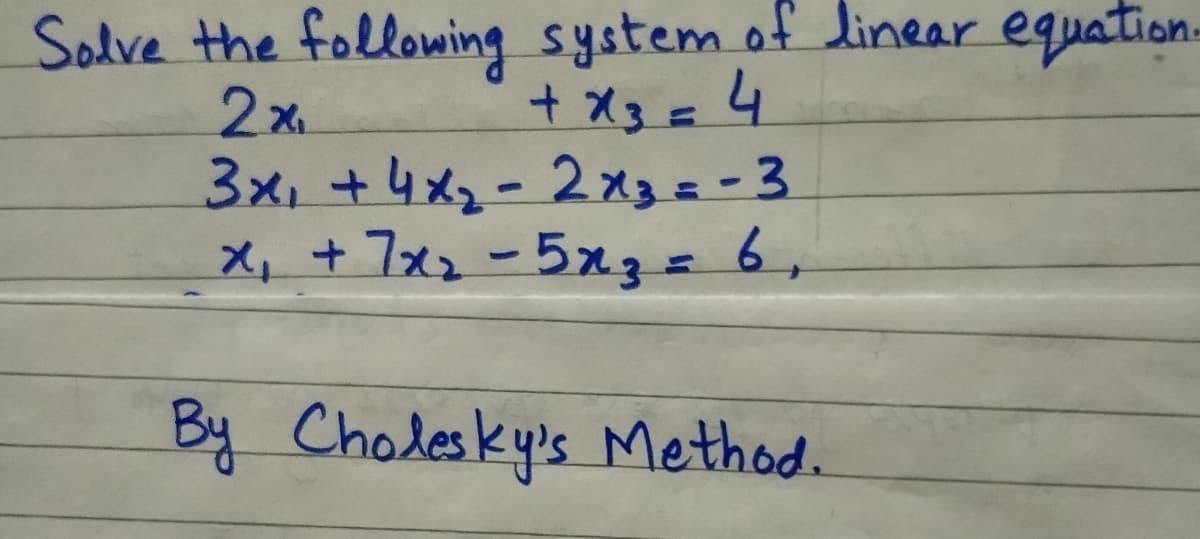 Solve the following system of linear equation.
2x₁ + x₃ = 4
3x₁ + 4x₂ - 2x₃ = -3
x₁ + 7x₂ - 5x₃ = 6,
By Cholesky's Method.